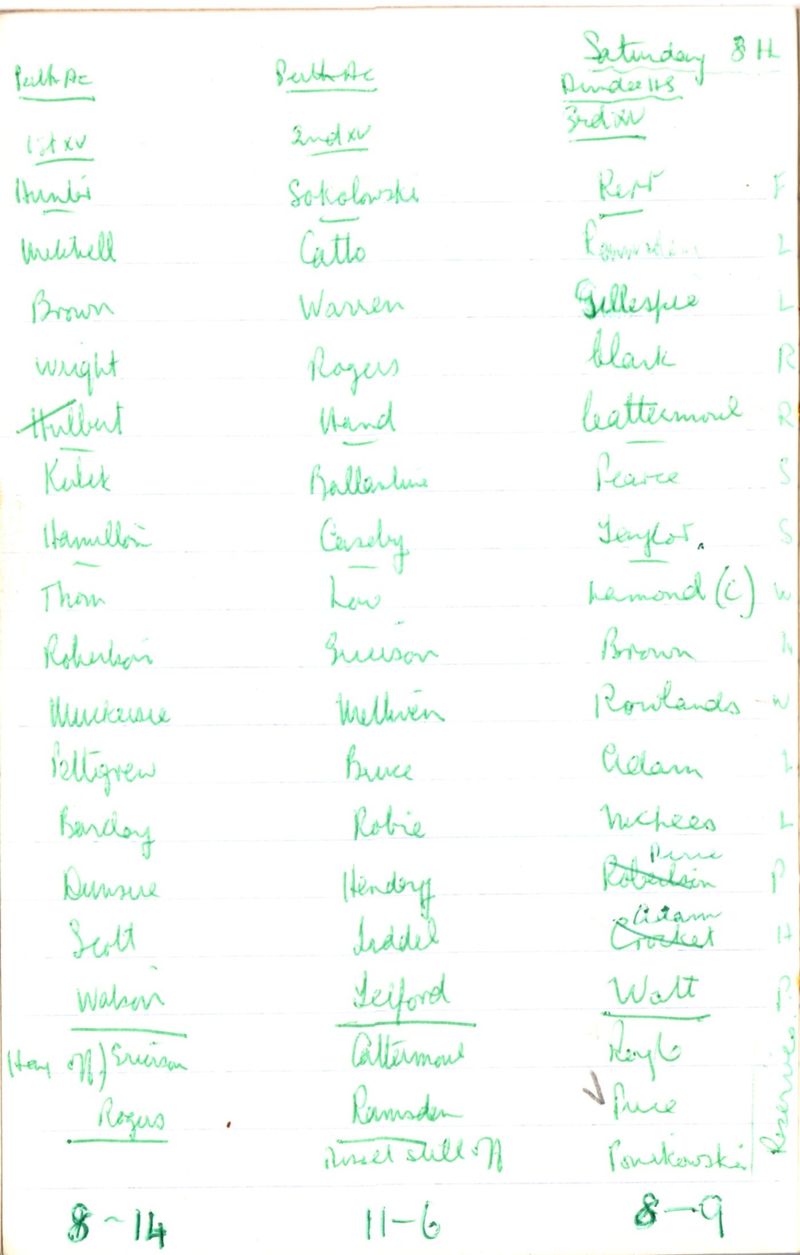 Saturday 8 H
Perth Ac Perth Ac Dundee HS
1st XV 2nd XV 3rd XV
Hunter Sokolowski Kerr F
Mitchell Catto Ramsden L
Brown Warren Gillespie L
Wright Rogers Clark R
Hulbert Hand Cattermoul R
Kulik Ballantine Pearce S
Hamilton Caseby Taylor. S
Thom Low Lamond (C) W
Robertson Grierson Brown
Muckersie Methven Rowlands W
Pettigrew Bruce Adam L
Barclay Robie McPhees L
Pirie
Dunsire Henderson Robertson P
Adam
Scott Liddel Crocket H
Watson Telford Watt P
(Hay off) Grierson Cattermoul
Rogers Ramsden Price
still off Ponikowski
Reserves
8-14 11-6 8-9